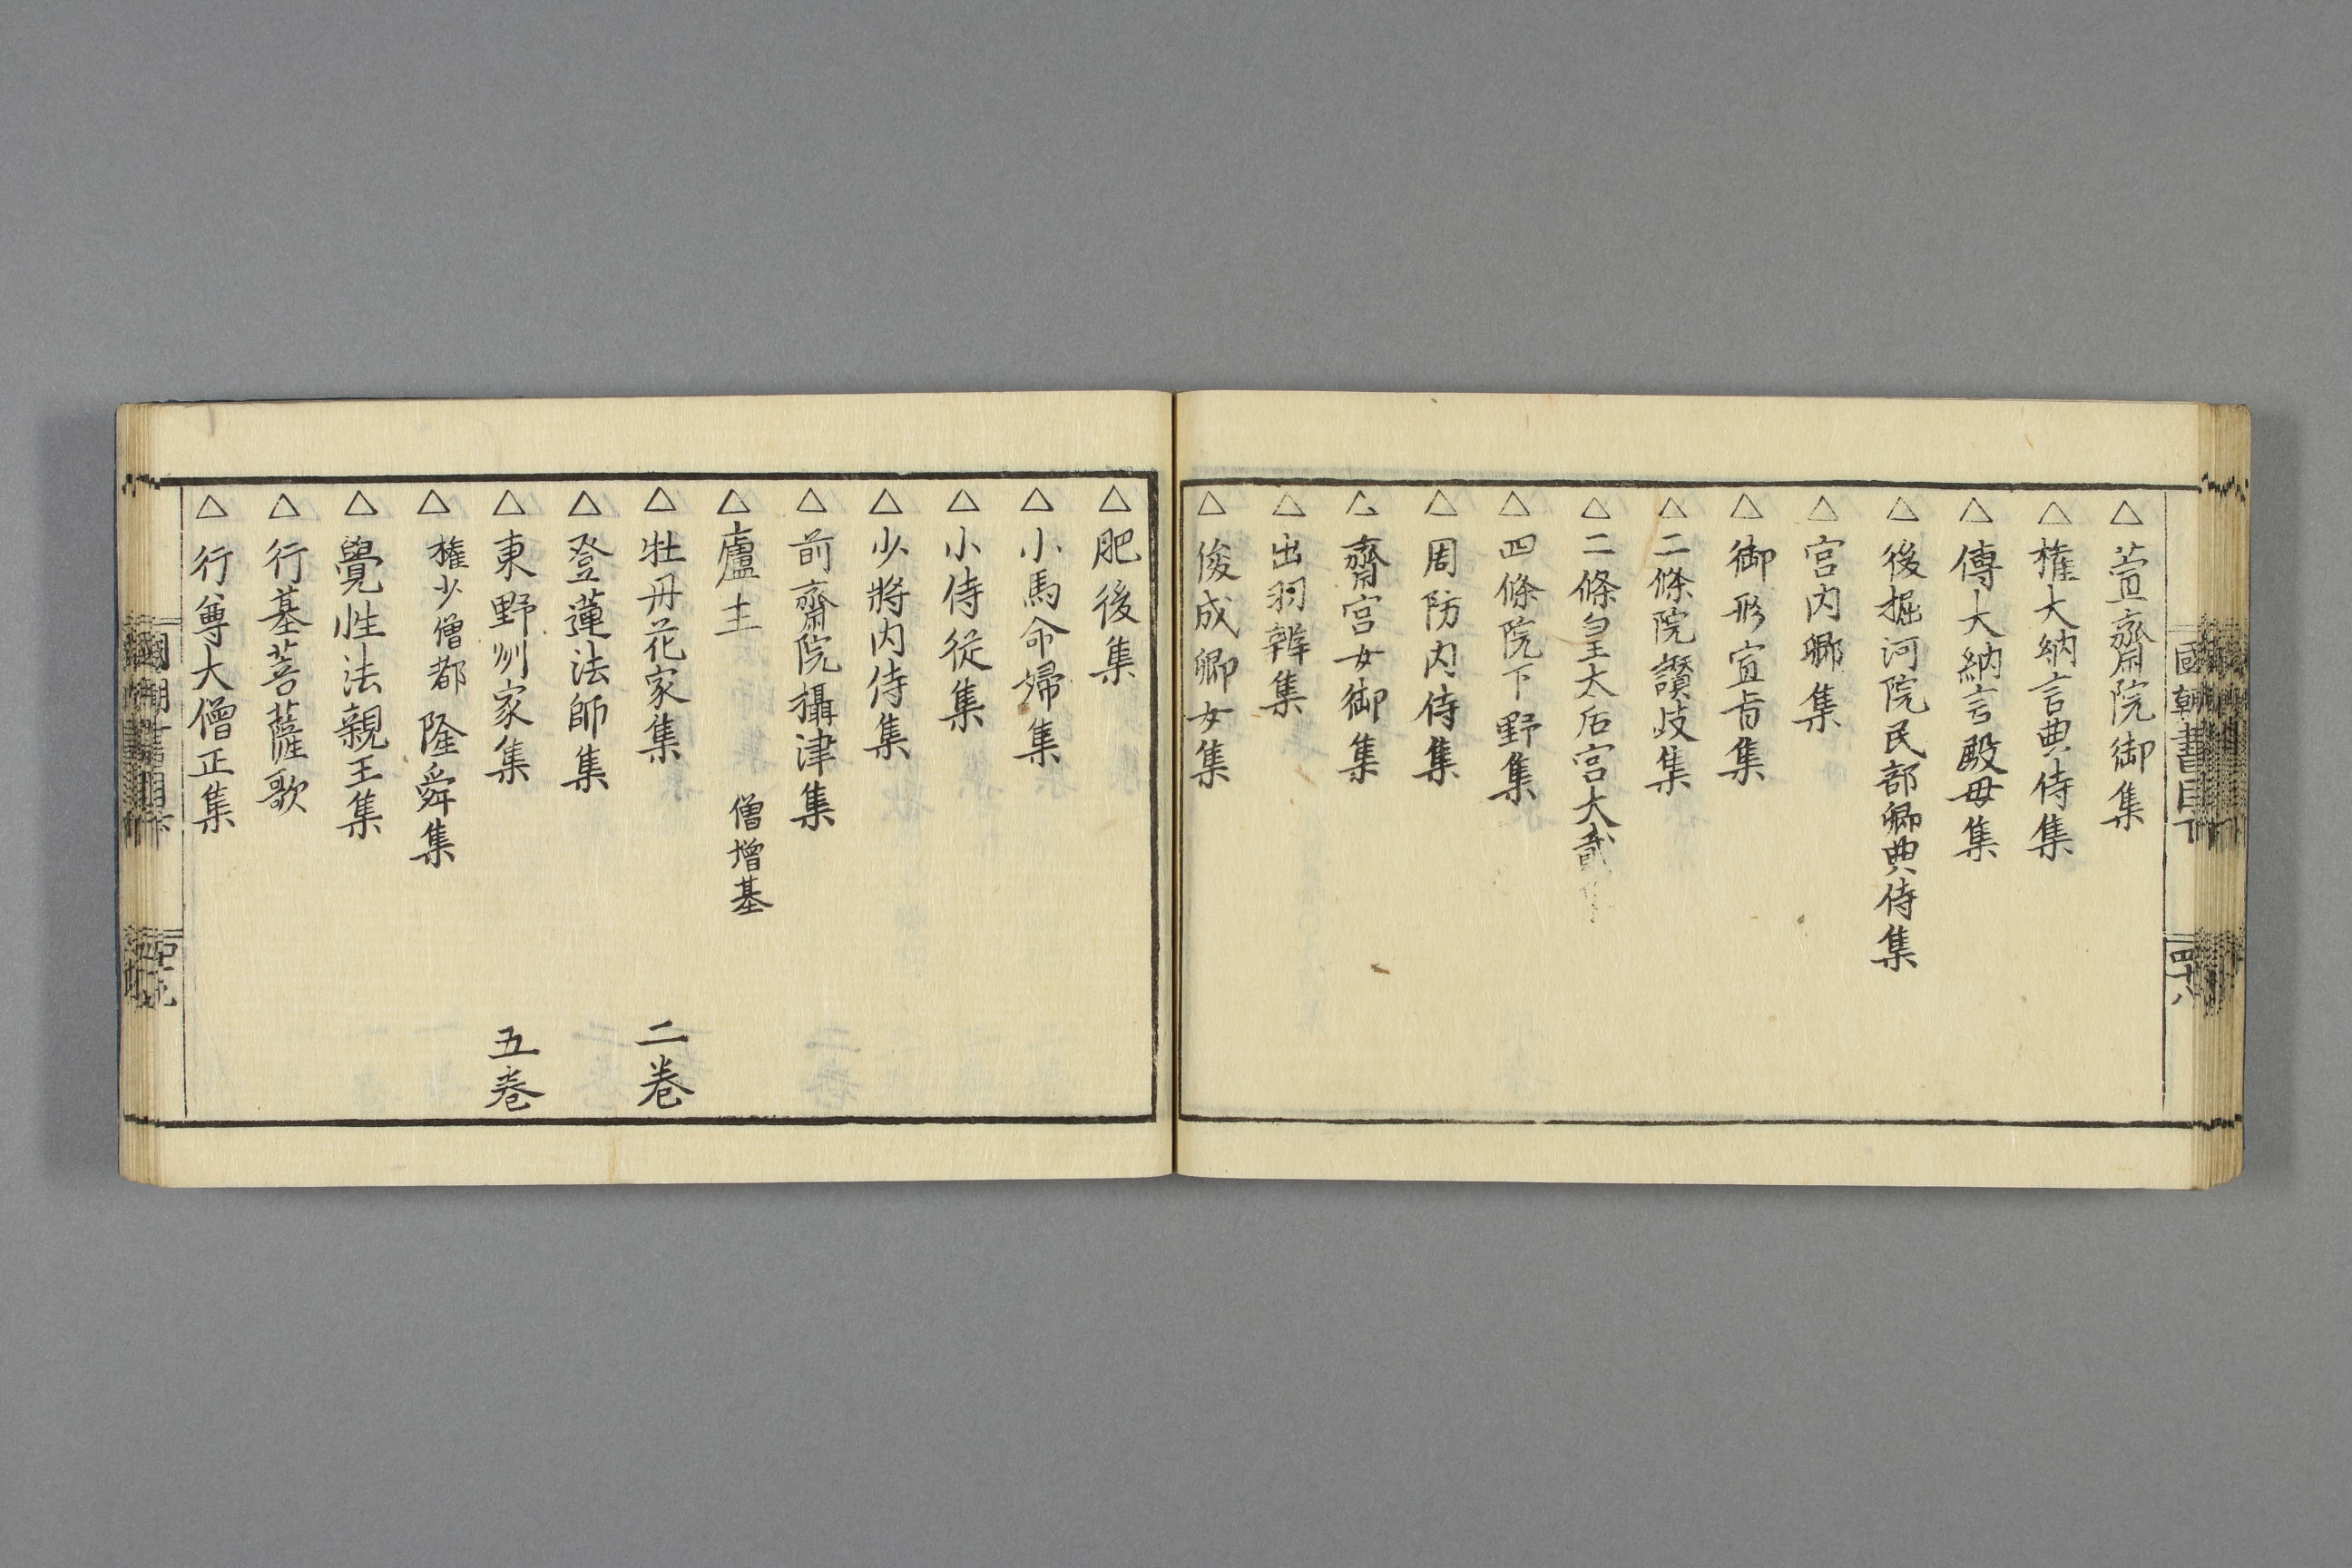 國朝書目下
四十八
△萱齋院御集
△權大納言典侍集
△傳大納言殿母集
△後掘河院民部卿典侍集
△宮内卿集
△御形宣旨集
△二條院讃歧集
△二條皇太后宮大貳
△四條院下野集
△周防内侍集
△齋宮女御集
△出羽辨集
△俊成卿女集
△肥後集
△小馬命婦集
△小侍從集
△少將内侍集
△前齋院攝津集
△廬主 僧增基
△牡丹花家集 二卷
△登蓮法師集
△東野州家集 五卷
△權少僧都隆舜集
△覺性法親王集
△行基菩薩歌
△行尊大僧正集